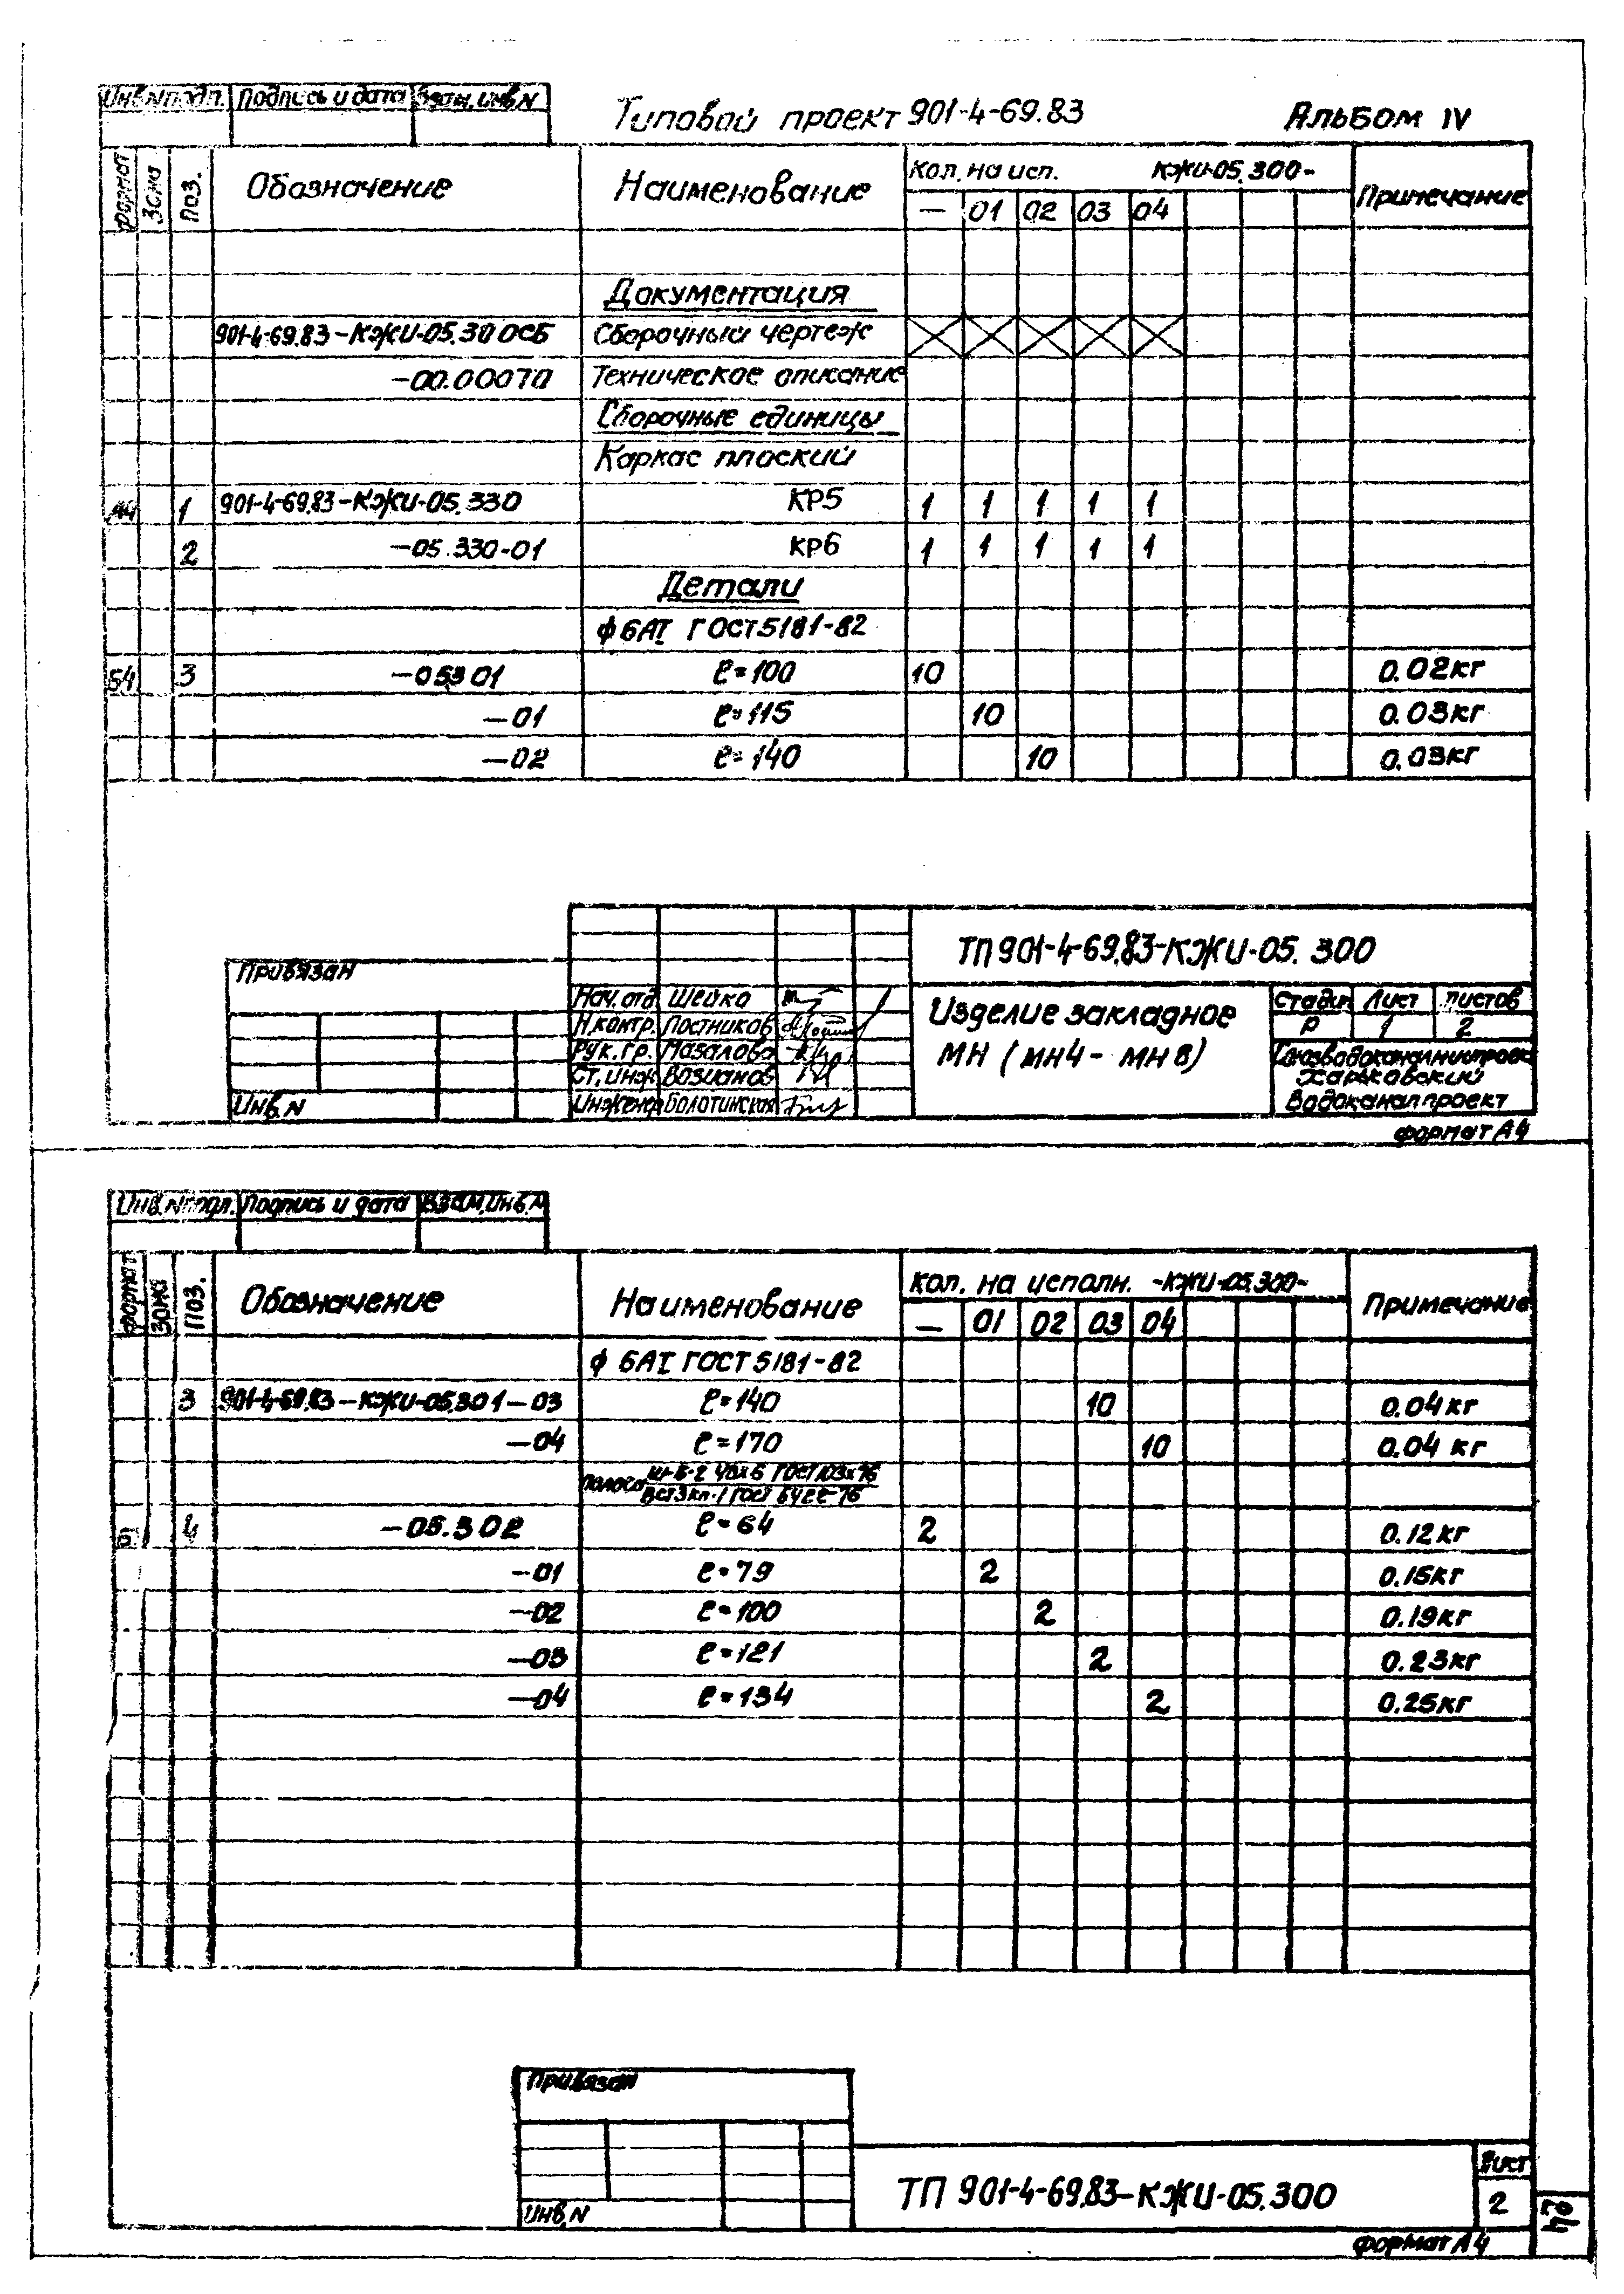 Инв.N подл. Подпись и дата Взам.инв.N
Типовой проект 901-4-69.83 Альбом IV
Формат Зона Поз. Обозначение Наименование Кол. на исп. КЖИ-05.300- Примечание
— 01 02 03 04
Документация
901-4-69.83-КЖИ-05.300СБ Сборочный чертеж
-00.000ТО Техническое описание
Сборочные единицы
Каркас плоский
А4 1 901-4-69.83-КЖИ-05.330 КР5 1 1 1 1 1
2 -05.330-01 КР6 1 1 1 1 1
Детали
ф6АI ГОСТ 5181-82
Б4 3 -05301 ℓ=100 10 0.02кг
-01 ℓ=115 10 0.03кг
-02 ℓ=140 10 0.03кг
ТП 901-4-69.83-КЖИ-05.300
Привязан
Нач.отд. Шейко
Н.контр. Постников
Рук.гр. Мазалова
Ст.инж. Возианов
Инженер Болотинская
Инв.N
Изделие закладное
МН (МН4- МН8)
Стадия Лист Листов
Р 1 2
Союзводоканалниипроект
Харьковский
Водоканалпроект
формат А4
Инв.N подл. Подпись и дата Взам.инв.N
Формат Зона Поз. Обозначение Наименование Кол. на исполн. -КЖИ-05.300- Примечание
— 01 02 03 04
ф 6АI ГОСТ 5181-82
3 901-4-69.83-КЖИ-05.301-03 ℓ=140 10 0.04кг
-04 ℓ=170 10 0.04 кг
Полоса 40х6 ГОСТ 103х76
ВСт3кп-1 ГОСТ 6422-76
4 -05.302 ℓ=64 2 0.12кг
-01 ℓ=79 2 0.15кг
-02 ℓ=100 2 0.19кг
-03 ℓ=121 2 0.23кг
-04 ℓ=134 2 0.25кг
Привязан
Инв.N
ТП 901-4-69.83-КЖИ-05.300
Лист
2
формат А4
40